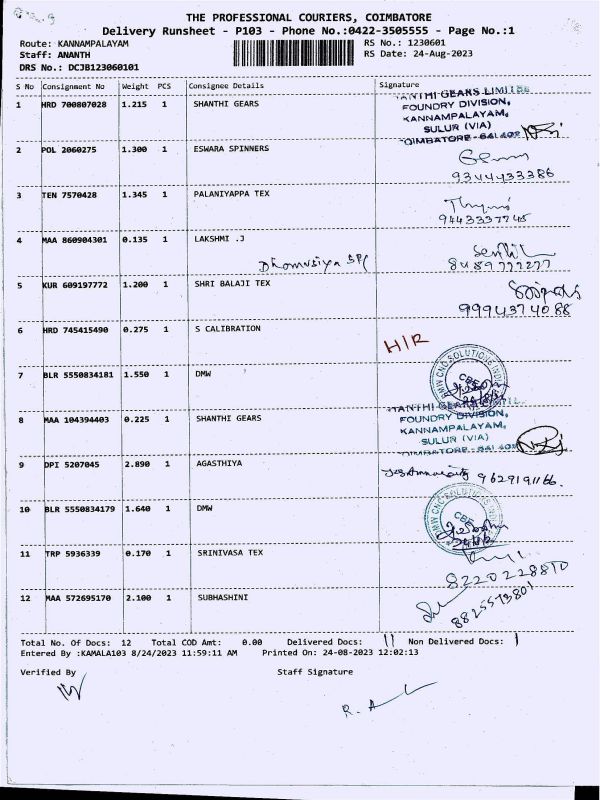 THE PROFESSIONAL COURIERS, COIMBATORE
Delivery Runsheet - P103 - Phone No.:0422-3505555 - Page No.:1
Route: KANNAMPALAYAM RS No.: 1230601
Staff: ANANTH RS Date: 24-Aug-2023
DRS No.: DCJB123060101
S No Consignment No Weight PCS Consignee Details Signature
1 HRD 700807028 1.215 1 SHANTHI GEARS
ANTHI GEARS LIMITED
FOUNDRY DIVISION,
KANNAMPALAYAM,
SULUR (VIA)
OIMBATORE - 641 402
2 POL 2060275 1.300 1 ESWARA SPINNERS
9344433386
3 TEN 7570428 1.345 1 PALANIYAPPA TEX
9443337745
4 MAA 860904301 0.135 1 LAKSHMI .J
Senthil
8489777277
5 KUR 609197772 1.200 1 SHRI BALAJI TEX
9994374088
6 HRD 745415490 0.275 1 S CALIBRATION
H/R
7 BLR 5550834181 1.550 1 DMW
8 MAA 104394403 0.225 1 SHANTHI GEARS
ANTHI GEARS LIMITE
FOUNDRY DIVISION,
KANNAMPALAYAM,
SULUR (VIA)
OIMBATORE - 641 402
9 DPI 5207045 2.890 1 AGASTHIYA
9629191166.
10 BLR 5550834179 1.640 1 DMW
11 TRP 5936339 0.170 1 SRINIVASA TEX
8220228810
12 MAA 572695170 2.100 1 SUBHASHINI
8825573801
Total No. Of Docs: 12 Total COD Amt: 0.00 Delivered Docs: 11 Non Delivered Docs: 1
Entered By :KAMALA103 8/24/2023 11:59:11 AM Printed On: 24-08-2023 12:02:13
Verified By Staff Signature
R. A